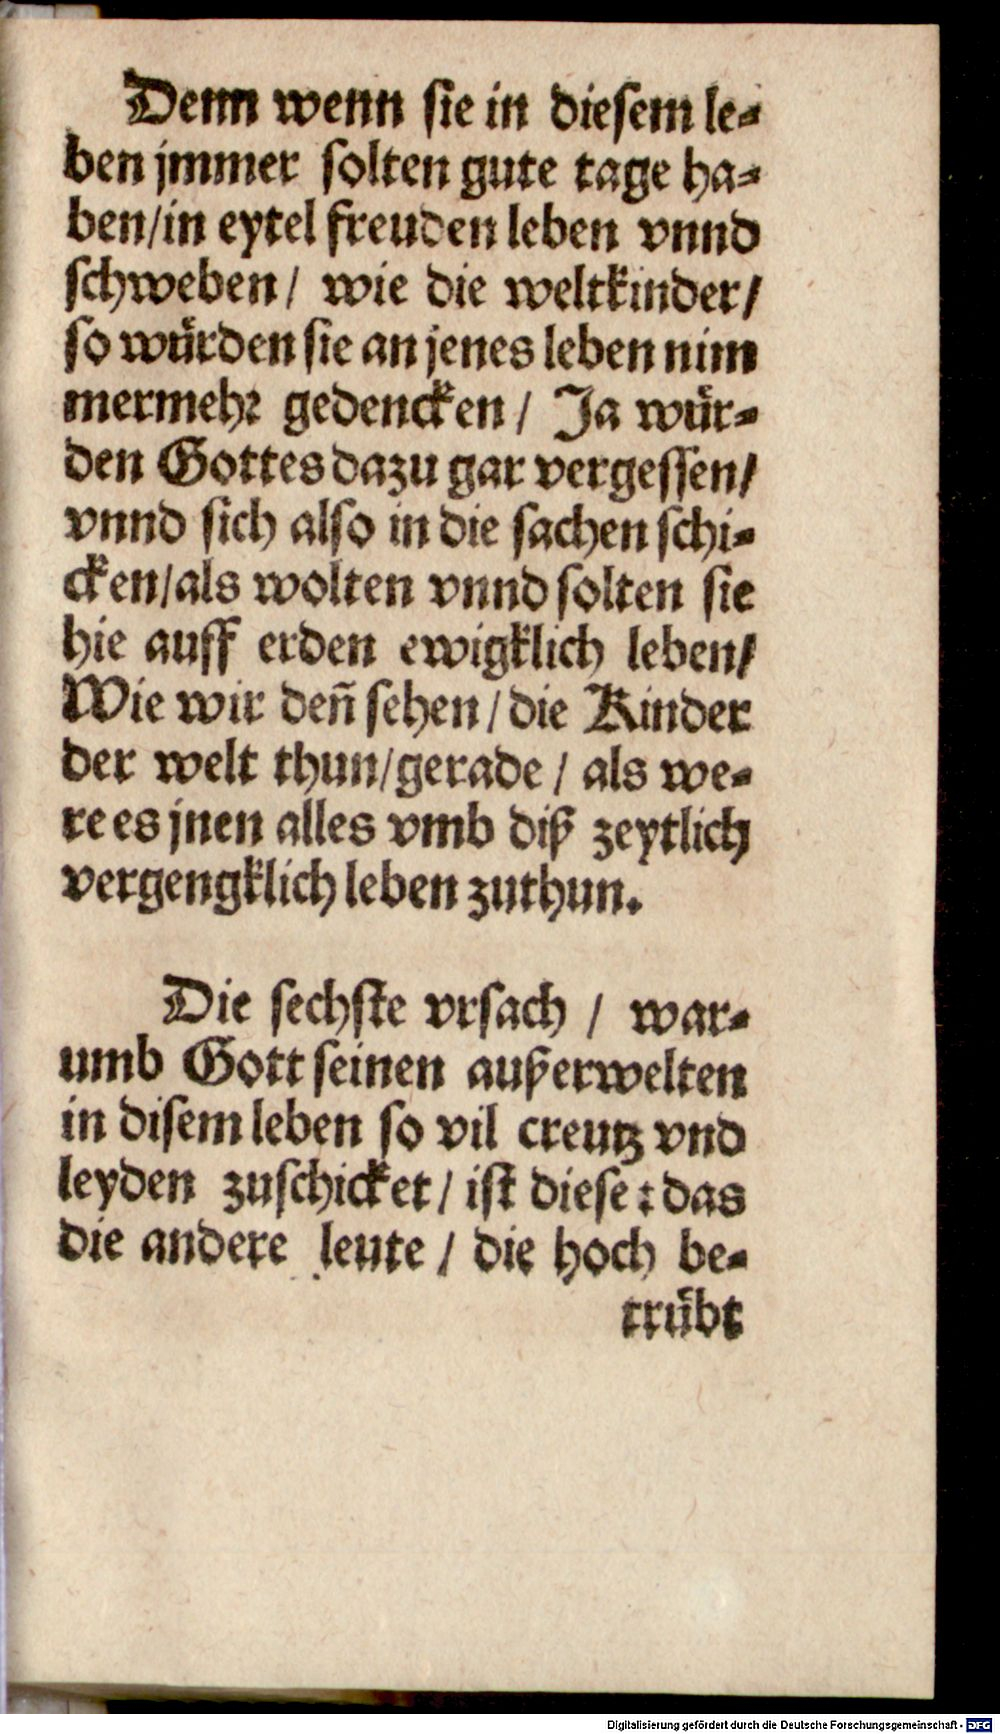 Denn wenn sie in diesem le⸗
ben jmmer solten gute tage ha⸗
ben/in eytel freuden leben vnnd
schweben/ wie die weltkinder/
so wuͤrden sie an jenes leben nim
mermehr gedencken/ Ja wuͤr⸗
den Gottes dazu gar vergessen/
vnnd sich also in die sachen schi⸗
cken/als wolten vnnd solten sie
hie auff erden ewigklich leben/
Wie wir deñ sehen/die Kinder
der welt thun/gerade/ als we⸗
re es jnen alles vmb diß zeytlich
vergengklich leben zuthun.
Die sechste vrsach/ war⸗
umb Gott seinen außerwelten
in disem leben so vil creutz vnd
leyden zuschicket/ ist diese: das
die andere leute/ die hoch be⸗
truͤbt
Digitalisierung gefördert durch die Deutsche Forschungsgemeinschaft - DFG